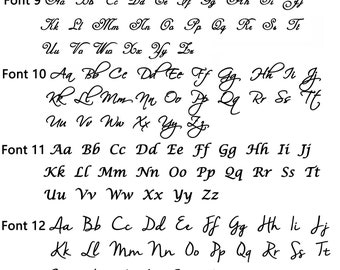 Font 9 Aa Bb Cc Dd Ee Ff Gg Hh Ii Jj
Kk Ll Mm Nn Oo Pp Qq Rr Ss Tt
Uu Vv Ww Xx Yy Zz
Font 10 Aa Bb Cc Dd Ee Ff Gg Hh Ii Jj
Kk Ll Mm Nn Oo Pp Qq Rr Ss Tt
Uu Vv Ww Xx Yy Zz
Font 11 Aa Bb Cc Dd Ee Ff Gg Hh Ii Jj
Kk Ll Mm Nn Oo Pp Qq Rr Ss Tt
Uu Vv Ww Xx Yy Zz
Font 12 Aa Bb Cc Dd Ee Ff Gg Hh Ii Jj
Kk Ll Mm Nn Oo Pp Qq Rr Ss Tt